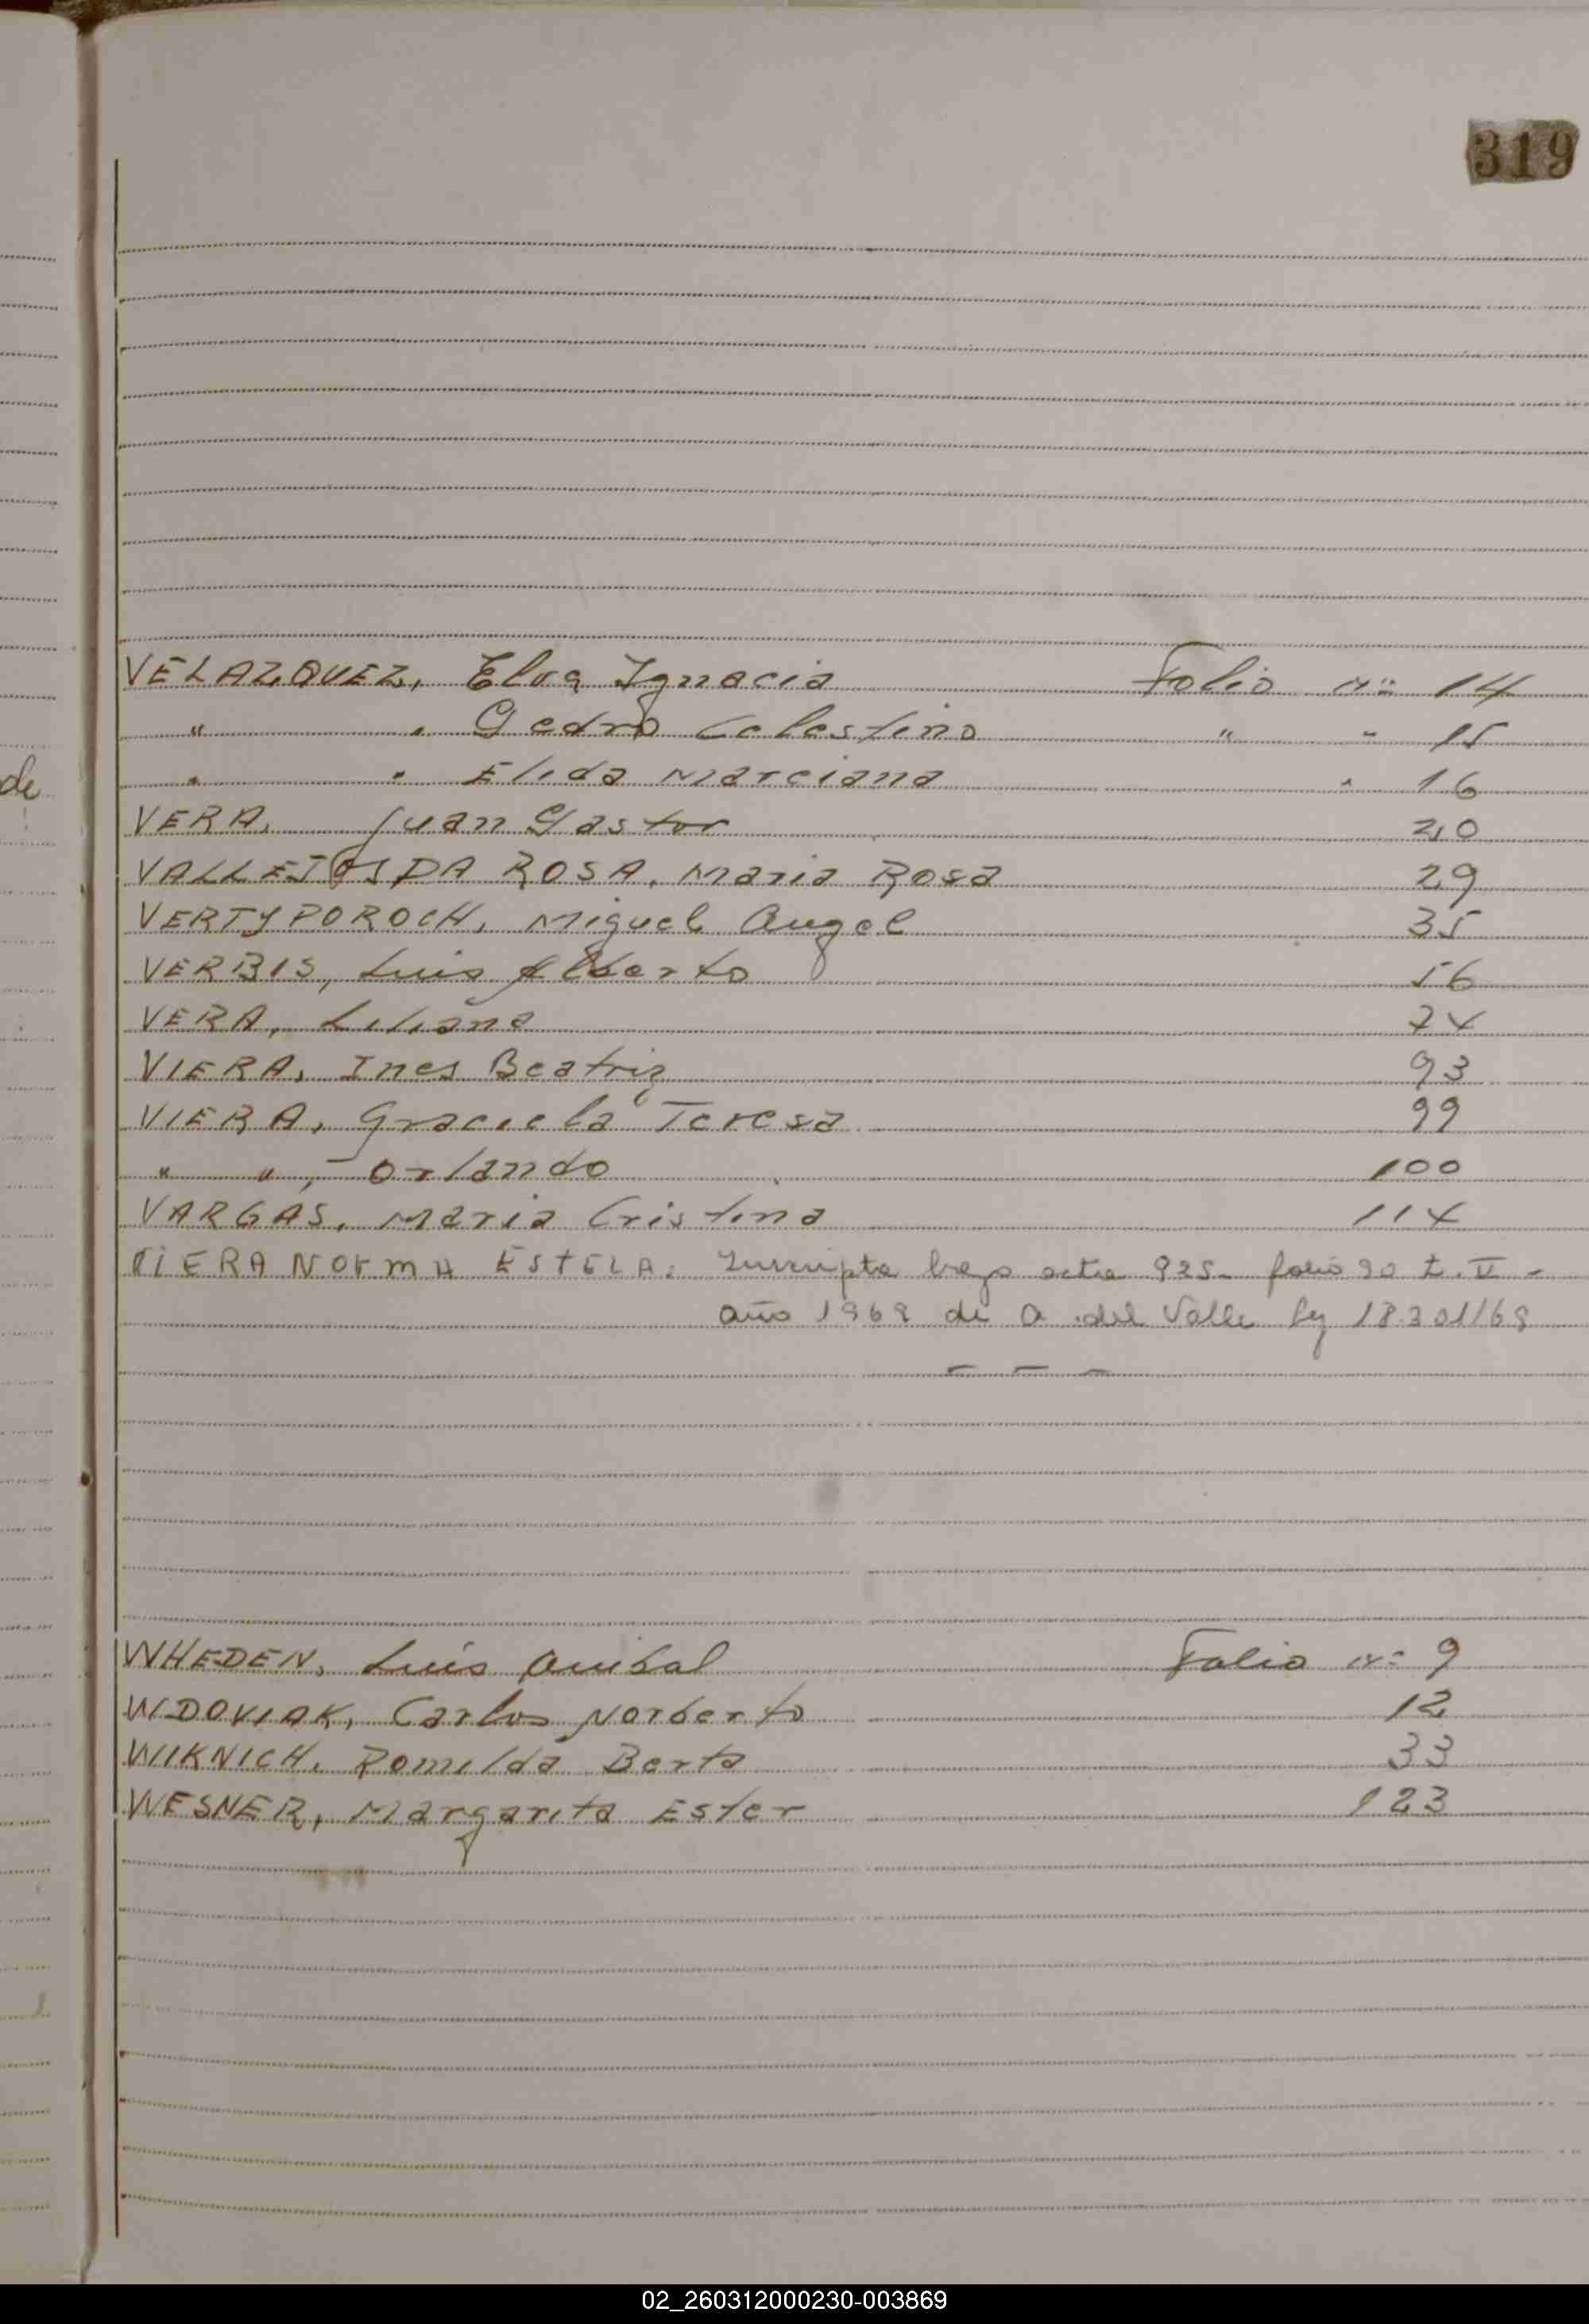 319
de
VELAZQUEZ, Elva Ignacia Folio nº 14
" " Pedro Celestino " " 15
" " Elida Marciana " 16
VERA, Juan Pastor 20
VALLEJOS DA ROSA, Maria Rosa 29
VERTYPOROCH, Miguel Angel 35
VERBIS, Luis Alberto 56
VERA, Liliana 74
VIERA, Ines Beatriz 93
VIERA, Graciela Teresa 99
" ", Orlando 100
VARGAS, Maria Cristina 114
VIERA NORMA ESTELA: Inscripta bajo acta 925- folio 90 t. II -
año 1969 de A. del Valle ley 18.301/69
WHEDEN, Luis Anibal Folio nº 9
WDOVIAK, Carlos Norberto 12
WIKNICH, Romilda Berta 33
WESNER, Margarita Ester 123
02_260312000230-003869